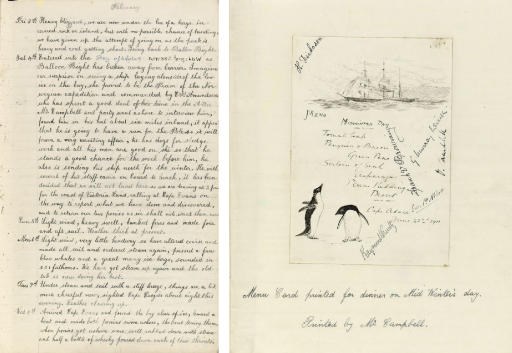 February
Fri 3rd Heavy blizzard, we are now under the lee of a barge, in-
we have given up the attempt of going on as the pack is
heavy and coal getting short. Going back to Balloon Bight.
Sat 4th Entered into the Bay of
Balloon Bight has broken away from barrier. Imagine
our surprise on seeing a ship laying alongside the low
ice in the bay, she proved to be the Fram of the Nor-
wegian expedition and commanded by Capt Amundsen
who has spent a good deal of his time in the Arctic
Mr Campbell and party went ashore to interview him,
found him in his hut about six miles inland, it appears
that he is going to have a run for the Pole so it will
from a very exciting affair, he has dogs for sledge
work and all his men are good on ski so that he
stands a good chance for the work before him, he
also is sending his ship north for the winter. He with
several of his staff came on board to lunch, it has been
decided that we will not land here so we are leaving at 2 pm
for the coast of Victoria Land, calling at Cape Evans on
the way to report what we have done and discovered,
and to return our two ponies as we shall not want them now
Sun 5th Light wind, heavy swell, banked fires and made fore
and aft sail. Weather thick at present.
Mon 6th Light wind, very little headway so have altered course and
made all sail and ordered steam again, passed a few
blue whales and a great many ice bergs, sounded in
fathoms. We have got steam up again and the old
tub is now doing her best.
Tues 7th Under steam and sail with a stiff breeze, things are a bit
more cheerful now, sighted Cape Evans about eight this
evening. Weather clearing up.
Wed 8th Arrived Cape Evans and found the bay clear of ice, lowered a
boat and made both ponies swim ashore, the boat towing them,
when ponies got ashore were well rubbed down with straw
and half a bottle of whisky poured down each of their throats
MENU
Midwinter Day
Tomato Soup
Penguin & Bacon
Green Peas
Asparagus
Plum Pudding
Cape Adare
June 22nd 1911
Menu Card printed for dinner on Mid Winter's day.
Printed by Mr Campbell.